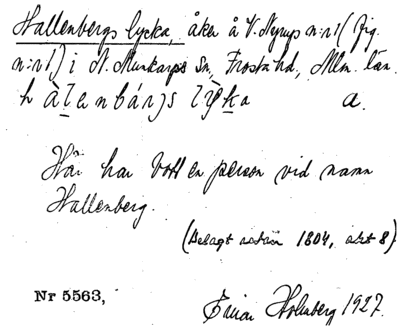 Hallenbergs lycka, åker å V. Nyrup n:r 1 (fig.
n:r 1) i N. Munkarps Sn, Frosta hd, Mlm. län.
a.
Här har bott en person vid namn
Hallenberg.
(Belagt sedan 1804, akt 8)
Nr 5563,
Holmberg 1927.